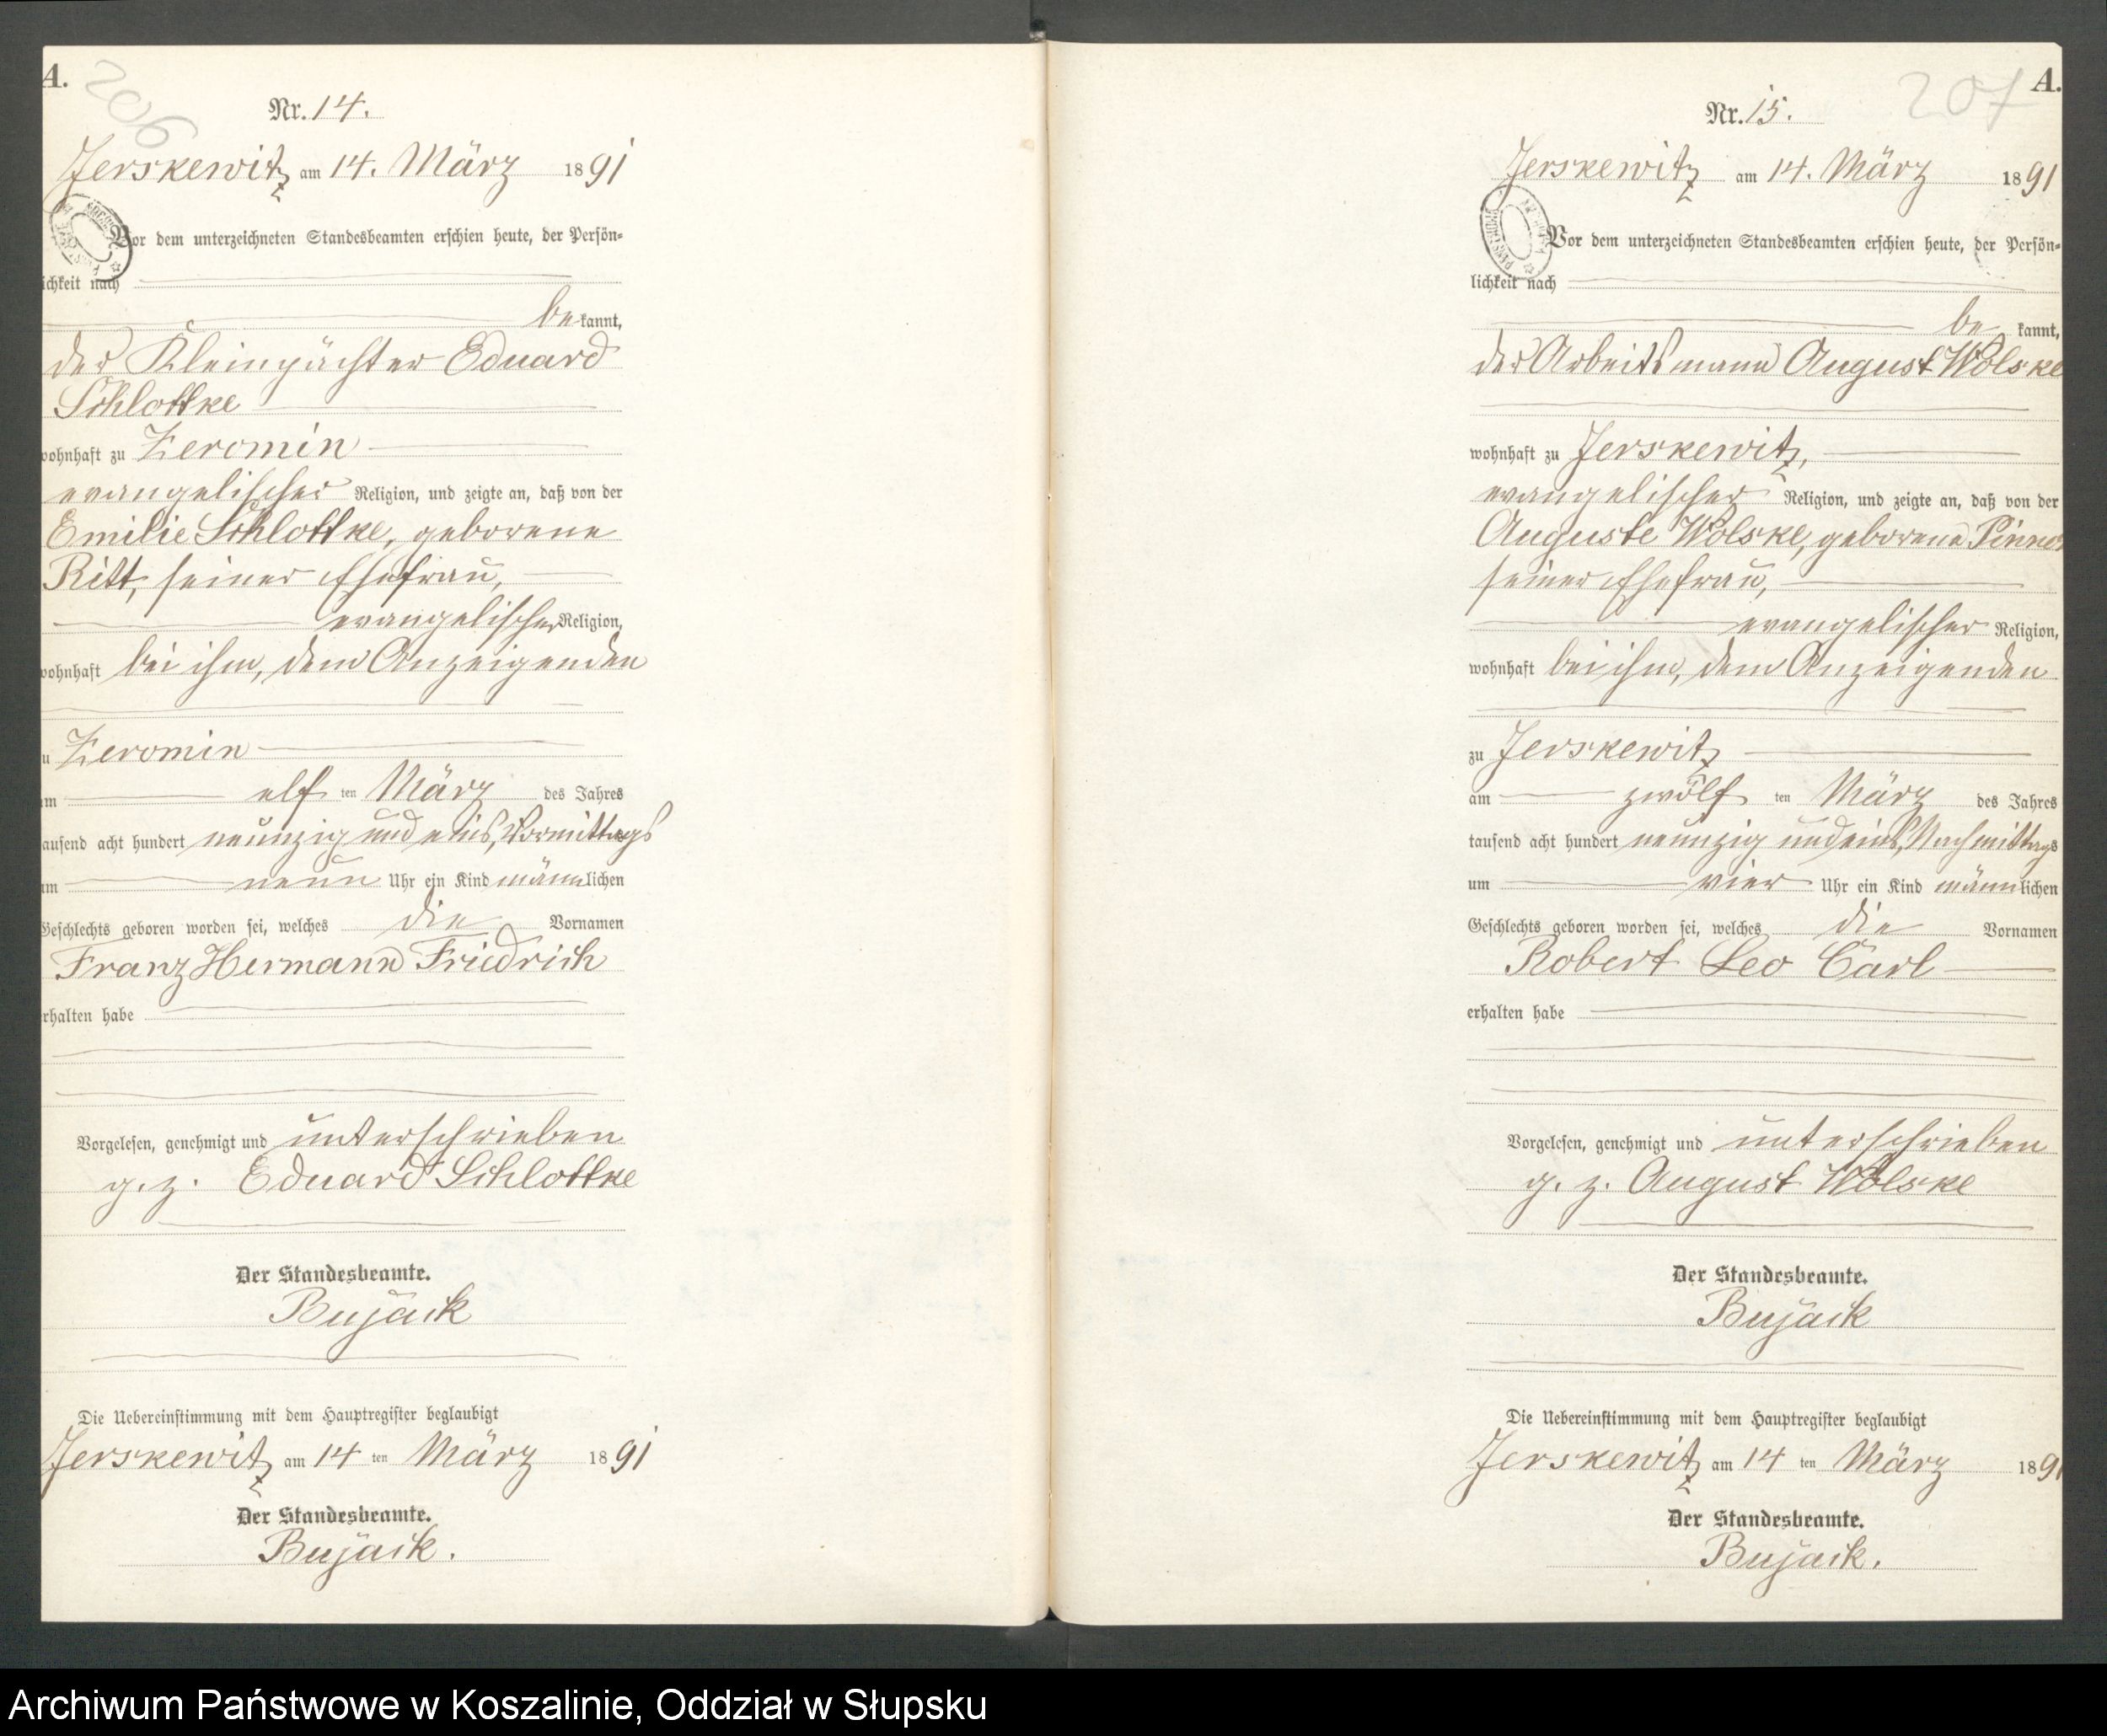 A.
206
Nr. 14.
Jerskewitz am 14. März 1891
Vor dem unterzeichneten Standesbeamten erschien heute, der Persön=
lichkeit nach
be kannt,
der Kleinpächter Eduard
Schlottke
wohnhaft zu Zeromin
evangelischer Religion, und zeigte an, daß von der
Emilie Schlottke, geborene
Ritt, seiner Ehefrau,
evangelischer Religion,
wohnhaft bei ihm, dem Anzeigenden
zu Zeromin
am elf ten März des Jahres
tausend acht hundert neunzig und eins, Vormittags
um neun Uhr ein Kind männlichen
Geschlechts geboren worden sei, welches die Vornamen
Franz Hermann Friedrich
erhalten habe
Vorgelesen, genehmigt und unterschrieben
g. z. Eduard Schlottke
Der Standesbeamte.
Bujack
Die Uebereinstimmung mit dem Hauptregister beglaubigt
Jerskewitz am 14 ten März 1891
Der Standesbeamte.
Bujack.
A.
207
Nr. 15.
Jerskewitz am 14. März 1891
Vor dem unterzeichneten Standesbeamten erschien heute, der Persön=
lichkeit nach
be kannt,
der Arbeitsmann August Wolske
wohnhaft zu Jerskewitz,
evangelischer Religion, und zeigte an, daß von der
Auguste Wolske, geborene
seiner Ehefrau,
evangelischer Religion,
wohnhaft bei ihm, dem Anzeigenden
zu Jerskewitz
am zwölf ten März des Jahres
tausend acht hundert neunzig und eins, Nachmittags
um vier Uhr ein Kind männlichen
Geschlechts geboren worden sei, welches die Vornamen
Robert Leo Carl
erhalten habe
Vorgelesen, genehmigt und unterschrieben
g. z. August Wolske
Der Standesbeamte.
Bujack
Die Uebereinstimmung mit dem Hauptregister beglaubigt
Jerskewitz am 14 ten März 1891
Der Standesbeamte.
Bujack.
Archiwum Państwowe w Koszalinie, Oddział w Słupsku